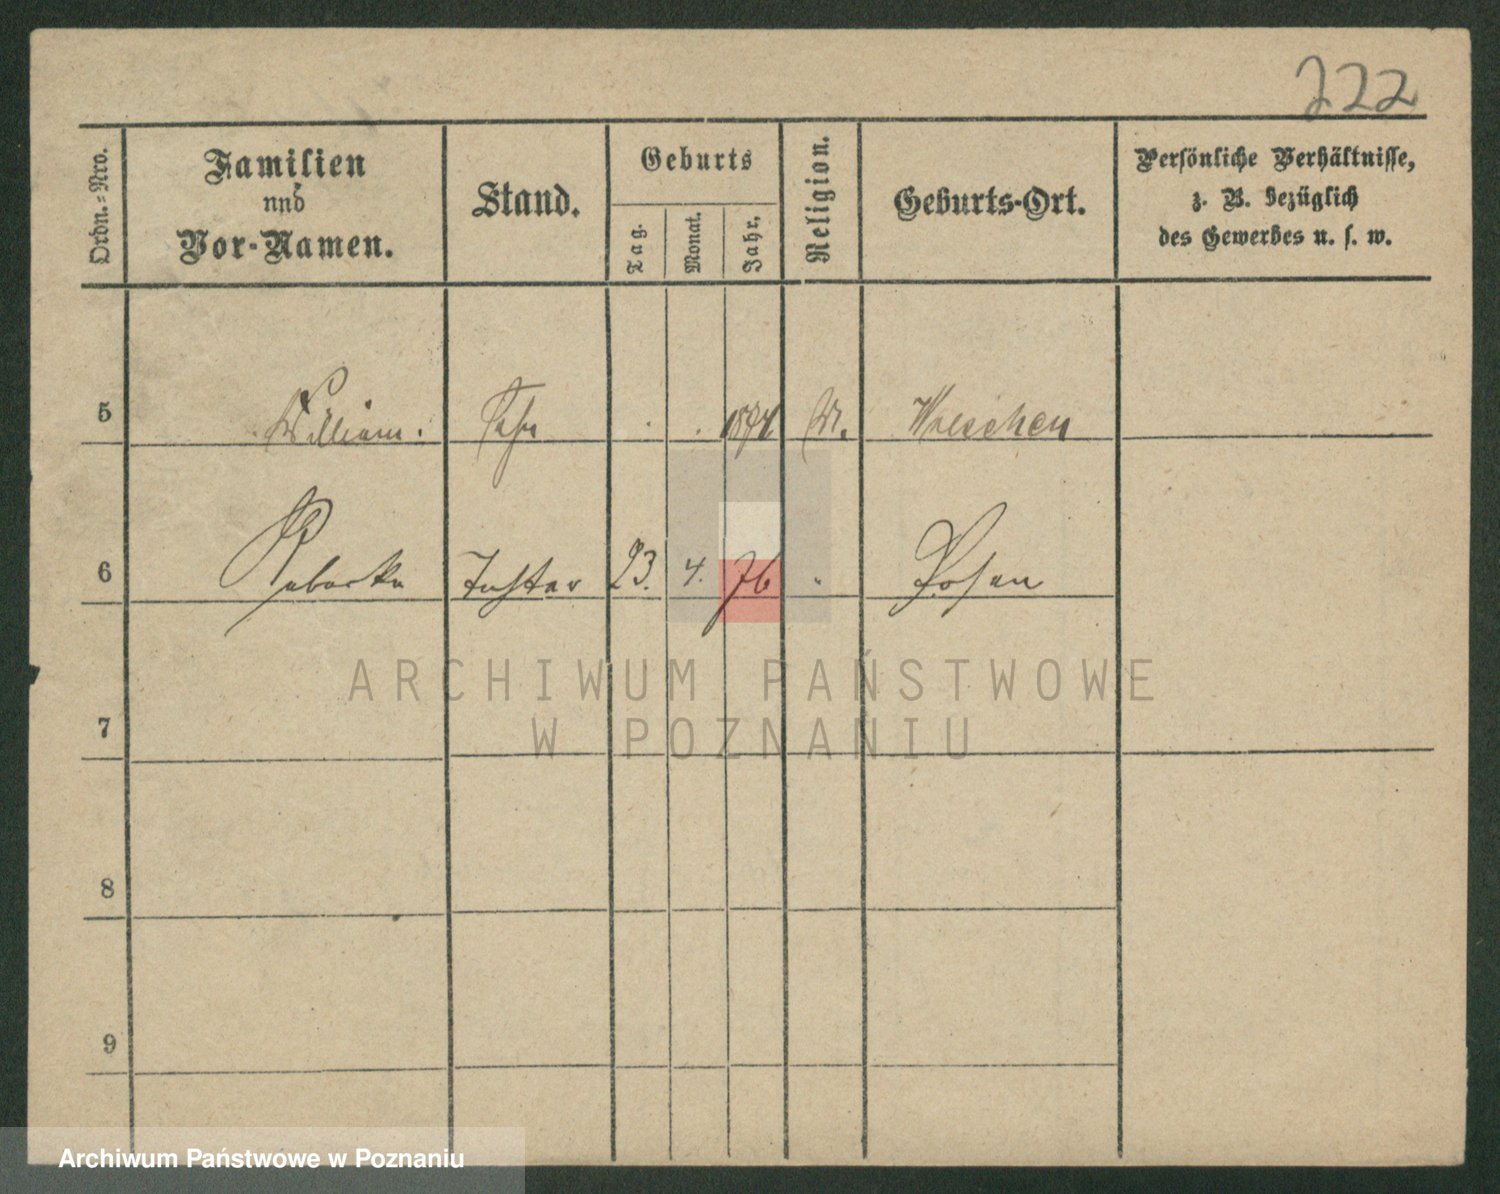 222
Ordn.-Nro.
Familien
und
Vor-Namen.
Stand.
Geburts
Tag.
Monat.
Jahr.
Religion.
Geburts-Ort.
Persönliche Verhältnisse,
z. B. bezüglich
des Gewerbes u. s. w.
5 William. Sohn 1874 M. Wreschen
6 Rebecka Tochter 23. 4. 76 " Posen
7
8
9
ARCHIWUM PAŃSTWOWE
W POZNANIU
Archiwum Państwowe w Poznaniu